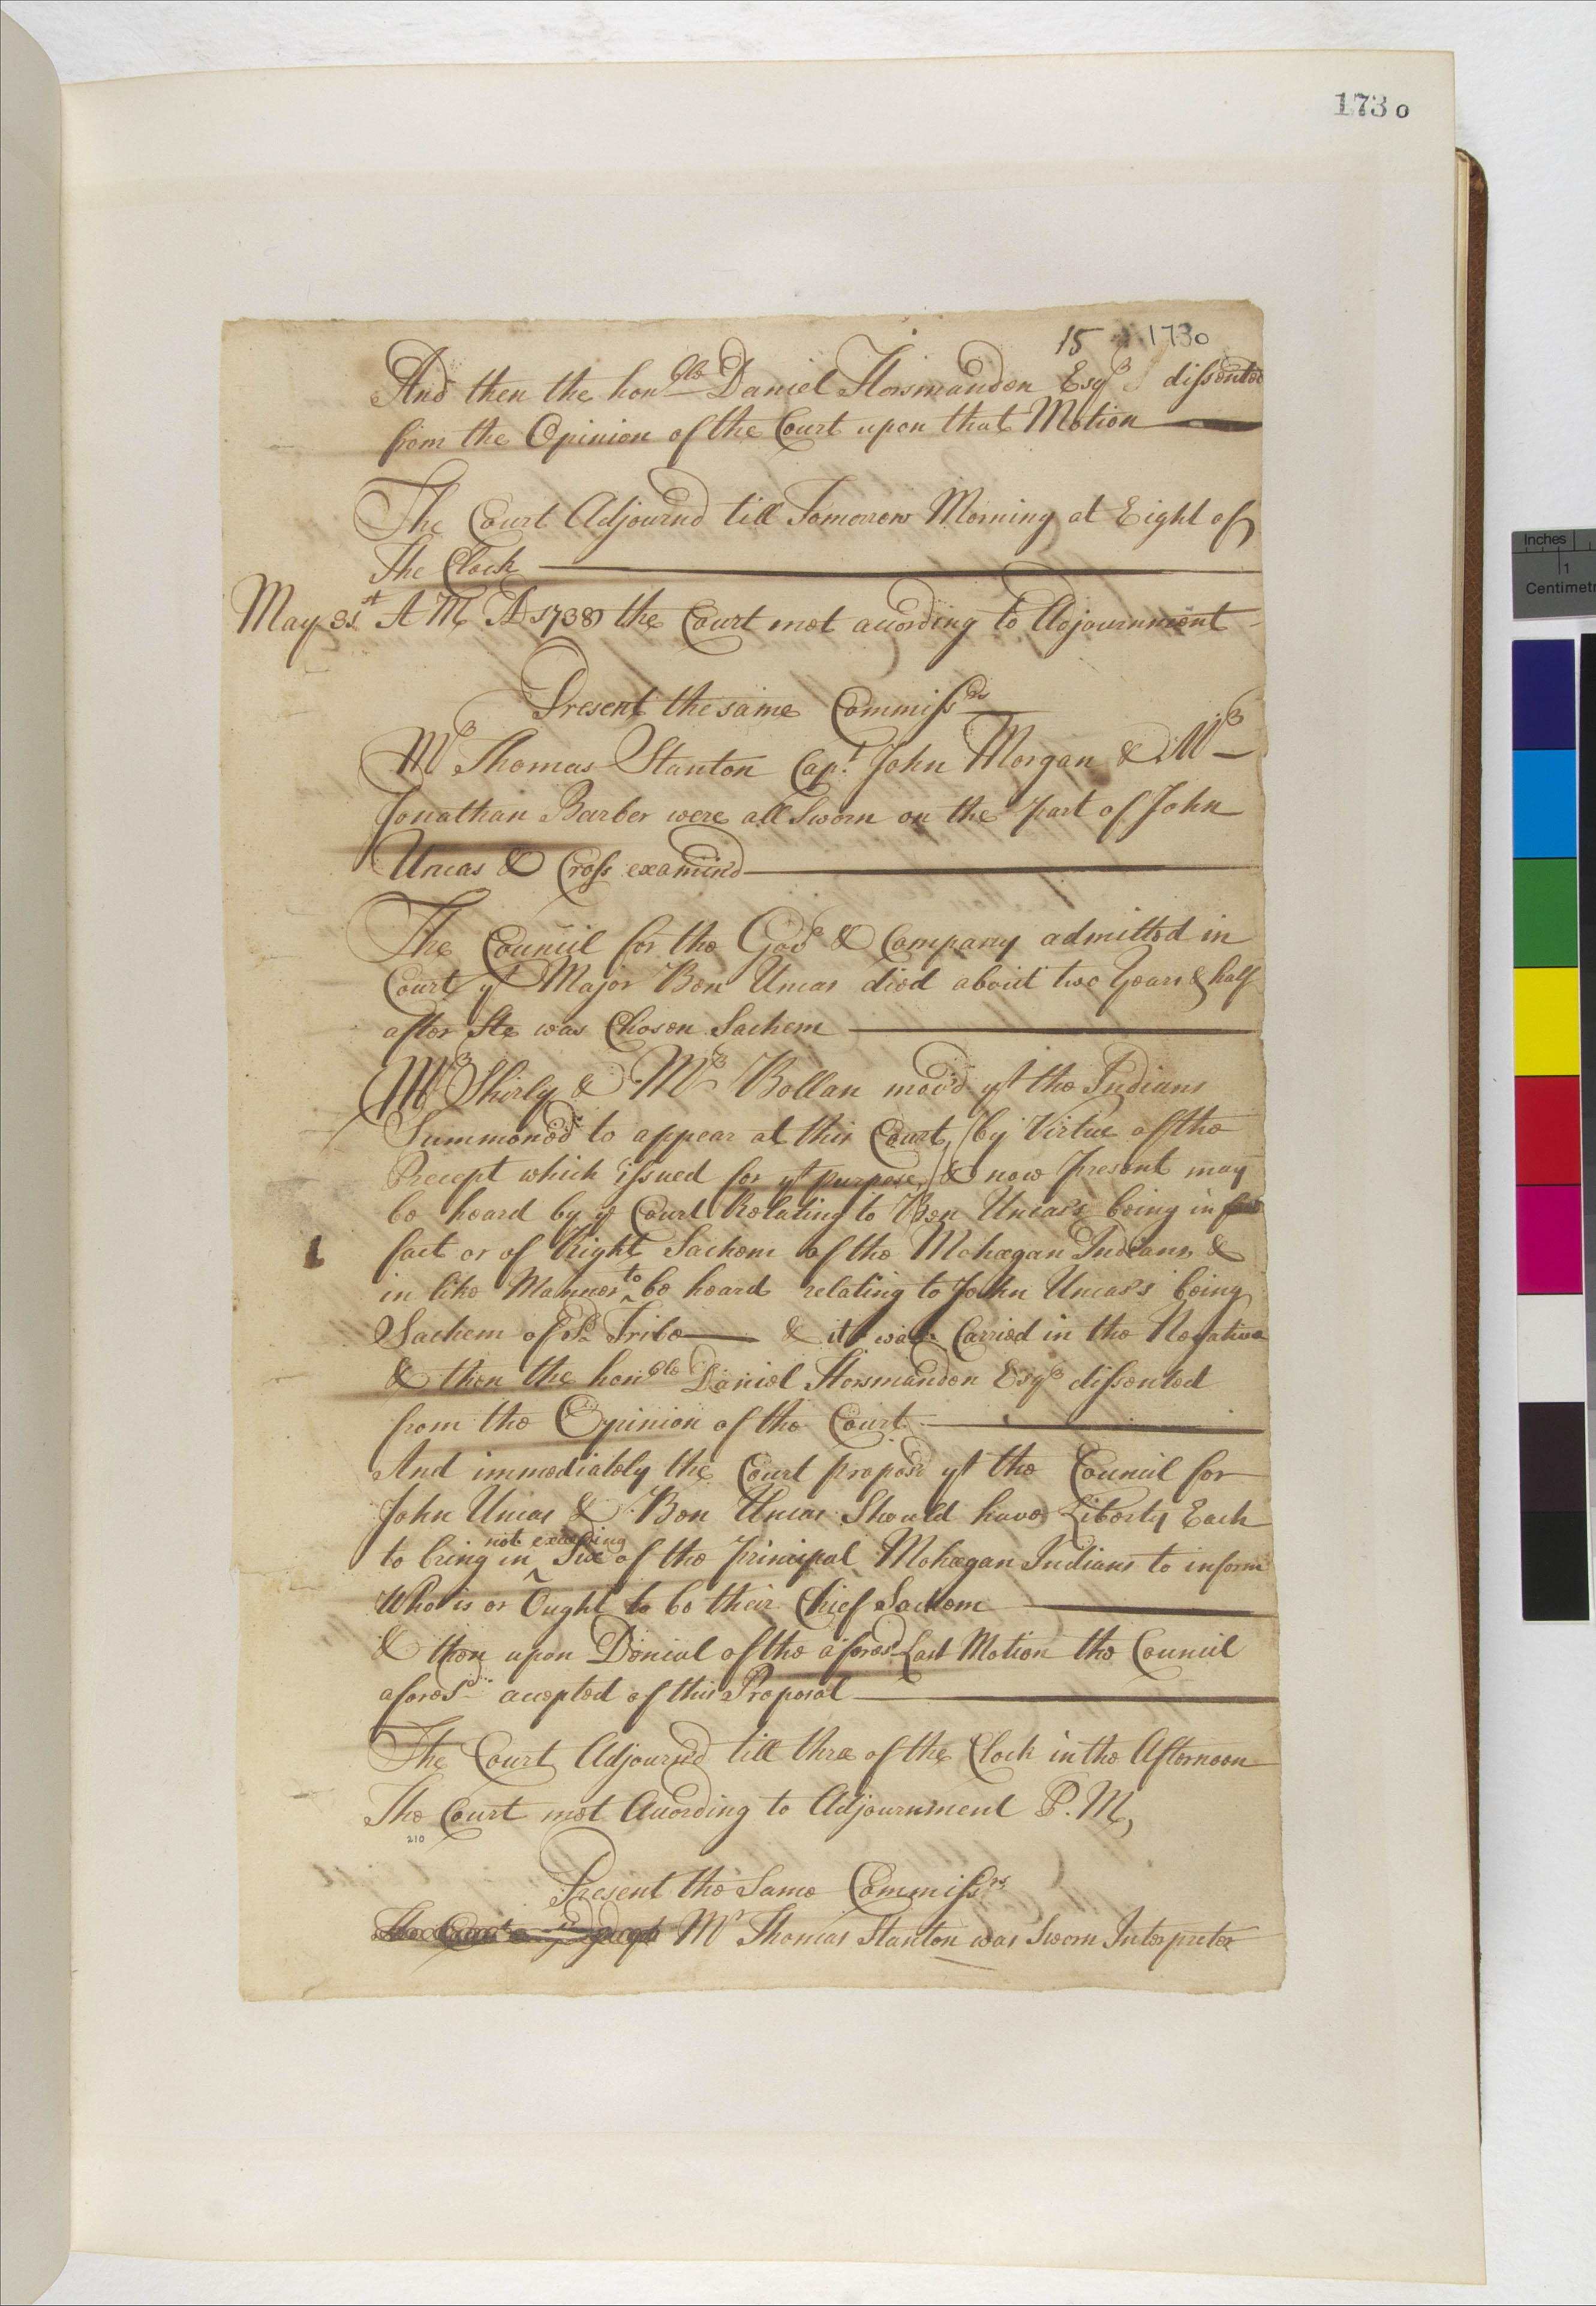 173 o
15 173o
And then the honble Daniel Horsmanden Esqr dissented
from the Opinion of the Court upon that Motion
The Court Adjournd till Tomorrow Morning at Eight of
The Clock
May 31st A M AD 1738 the Court met according to Adjournment
Present the same Commissrs
Mr Thomas Stanton Capt. John Morgan & Mr
Jonathan Barber were all Sworn on the part of John
Uncas & Cross examind
The Council for the Govr & Company admitted in
Court yt Major Ben Uncas died about two Years & half
after He was Chosen Sachem
Mr Shirly & Mr Bollan mov'd yt the Indians
Summoned to appear at this Court, (by Virtue of the
Precept which issued for yt purpose,) & now present may
be heard by ye Court Relating to Ben Uncas's being in
fact or of Right Sachem of the Mohegan Indians &
in like Manner to be heard relating to John Uncas's being
Sachem of sd Tribe & it was Carried in the Negative
& then the honble Daniel Horsmanden Esqr dissented
from the Opinion of the Court
And immediately the Court propos'd yt the Council for
John Uncas & Ben Uncas Should have Liberty Each
to bring in not exceeding Six of the principal Mohegan Indians to inform
Who is or Ought to be their Chief Sachem
& then upon Denial of the aforesd Last Motion the Council
aforesd accepted of this Proposal
The Court Adjournd till three of the Clock in the Afternoon
The Court met According to Adjournment P. M,
210
Present the Same Commissrs
Mr Thomas Stanton was Sworn Interpreter
Inches
1
Centimetr